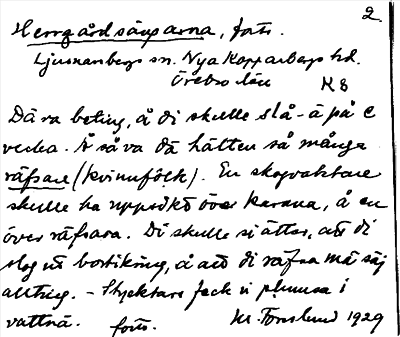 2.
Herrgårdsängarna, forts.
Ljusnarsbergs sn. Nya Kopparbergs hd.
Örebro län K8
Dä va beting, å di skulle slå-ä på e
vecka. Å så va dä hälten så många
räfsare (kvinnfôlk). En skogvaktare
skulle ha uppsikt över karana, å en
över räfsara. Di skulle si ätter, att di
slog ut bortikring, å att di räfsa mä säj
allting. – Stycktare feck vi plumsa i
vattnä. forts. M. Fornlund 1929